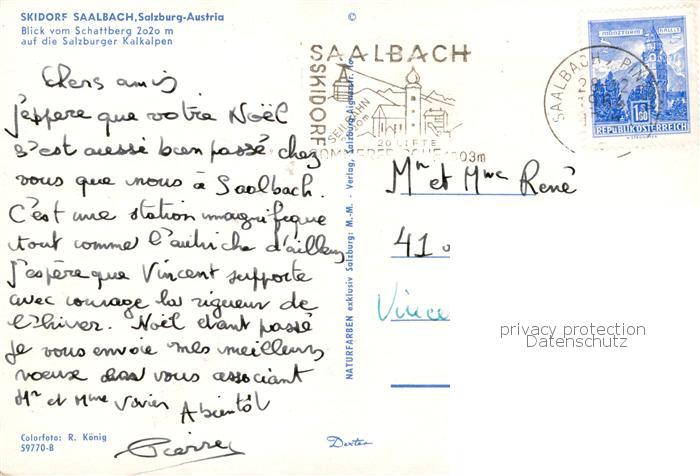 SKIDORF SAALBACH, Salzburg-Austria
Blick vom Schattberg 2o2o m
auf die Salzburger Kalkalpen
Chers amis
J'espère que votre Noël
s'est aussi bien passé chez
vous que nous à Saalbach.
C'est une station magnifique
tout comme l'autriche d'ailleurs
J'espère que Vincent supporte
avec courage la rigueur de
l'hiver. Noël étant passé
je vous envoie mes meilleurs
voeux vous associant
Mr et Mme A bientôt
Pierre
Colorfoto: R. König
59770-B
NATURFARBEN exklusiv Salzburg: M.-M. - Verlag, Salzburg
©
SAALBACH
SKIDORF
SEILBAHN
20 LIFTE
SOMMERFRISCHE 1003m
SAALBACH
MÜNZTURM HALL I.T.
1.60
REPUBLIK ÖSTERREICH
Mr et Mme René
41
Vince
privacy protection
Datenschutz
Dextea